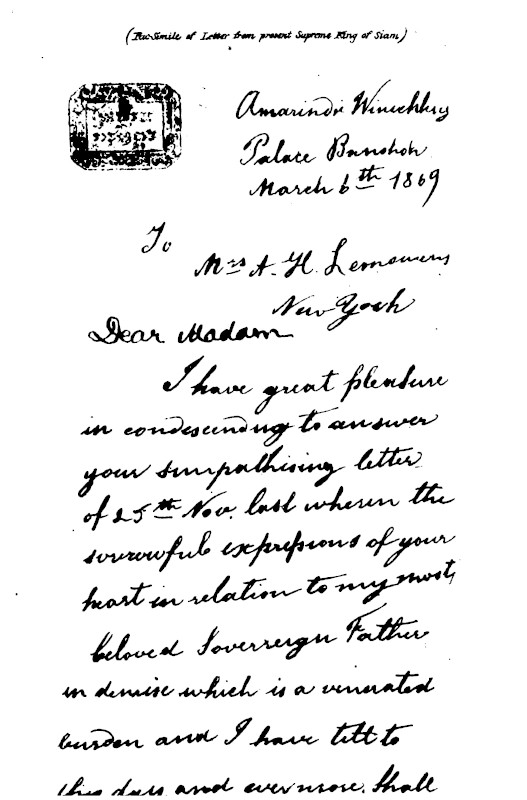 (Fac-Simile of Letter from present Supreme King of Siam)
Amarindr Winichhey
Palace Bangkok
March 6th 1869
To
Mrs A. H. Leonowens
New York
Dear Madam
I have great pleasure
in condescending to answer
your simpathising letter
of 25th Nov. last wherein the
sorrowful expressions of your
heart in relation to my most
beloved Soverreign Father
in demise which is a venerated
burden and I have till to
this days and evermore. Shall